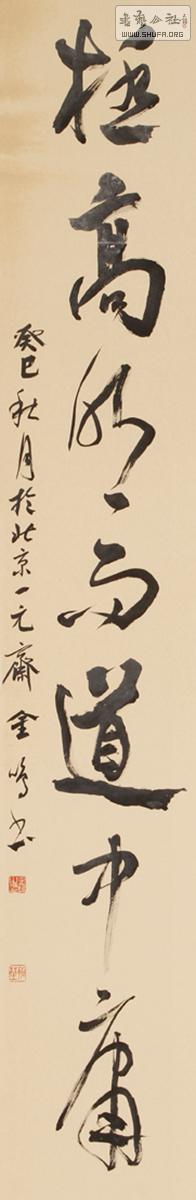 書法公社
WWW.SHUFA.ORG
極高明而道中庸
癸巳秋月於北京一元齋金鳴書